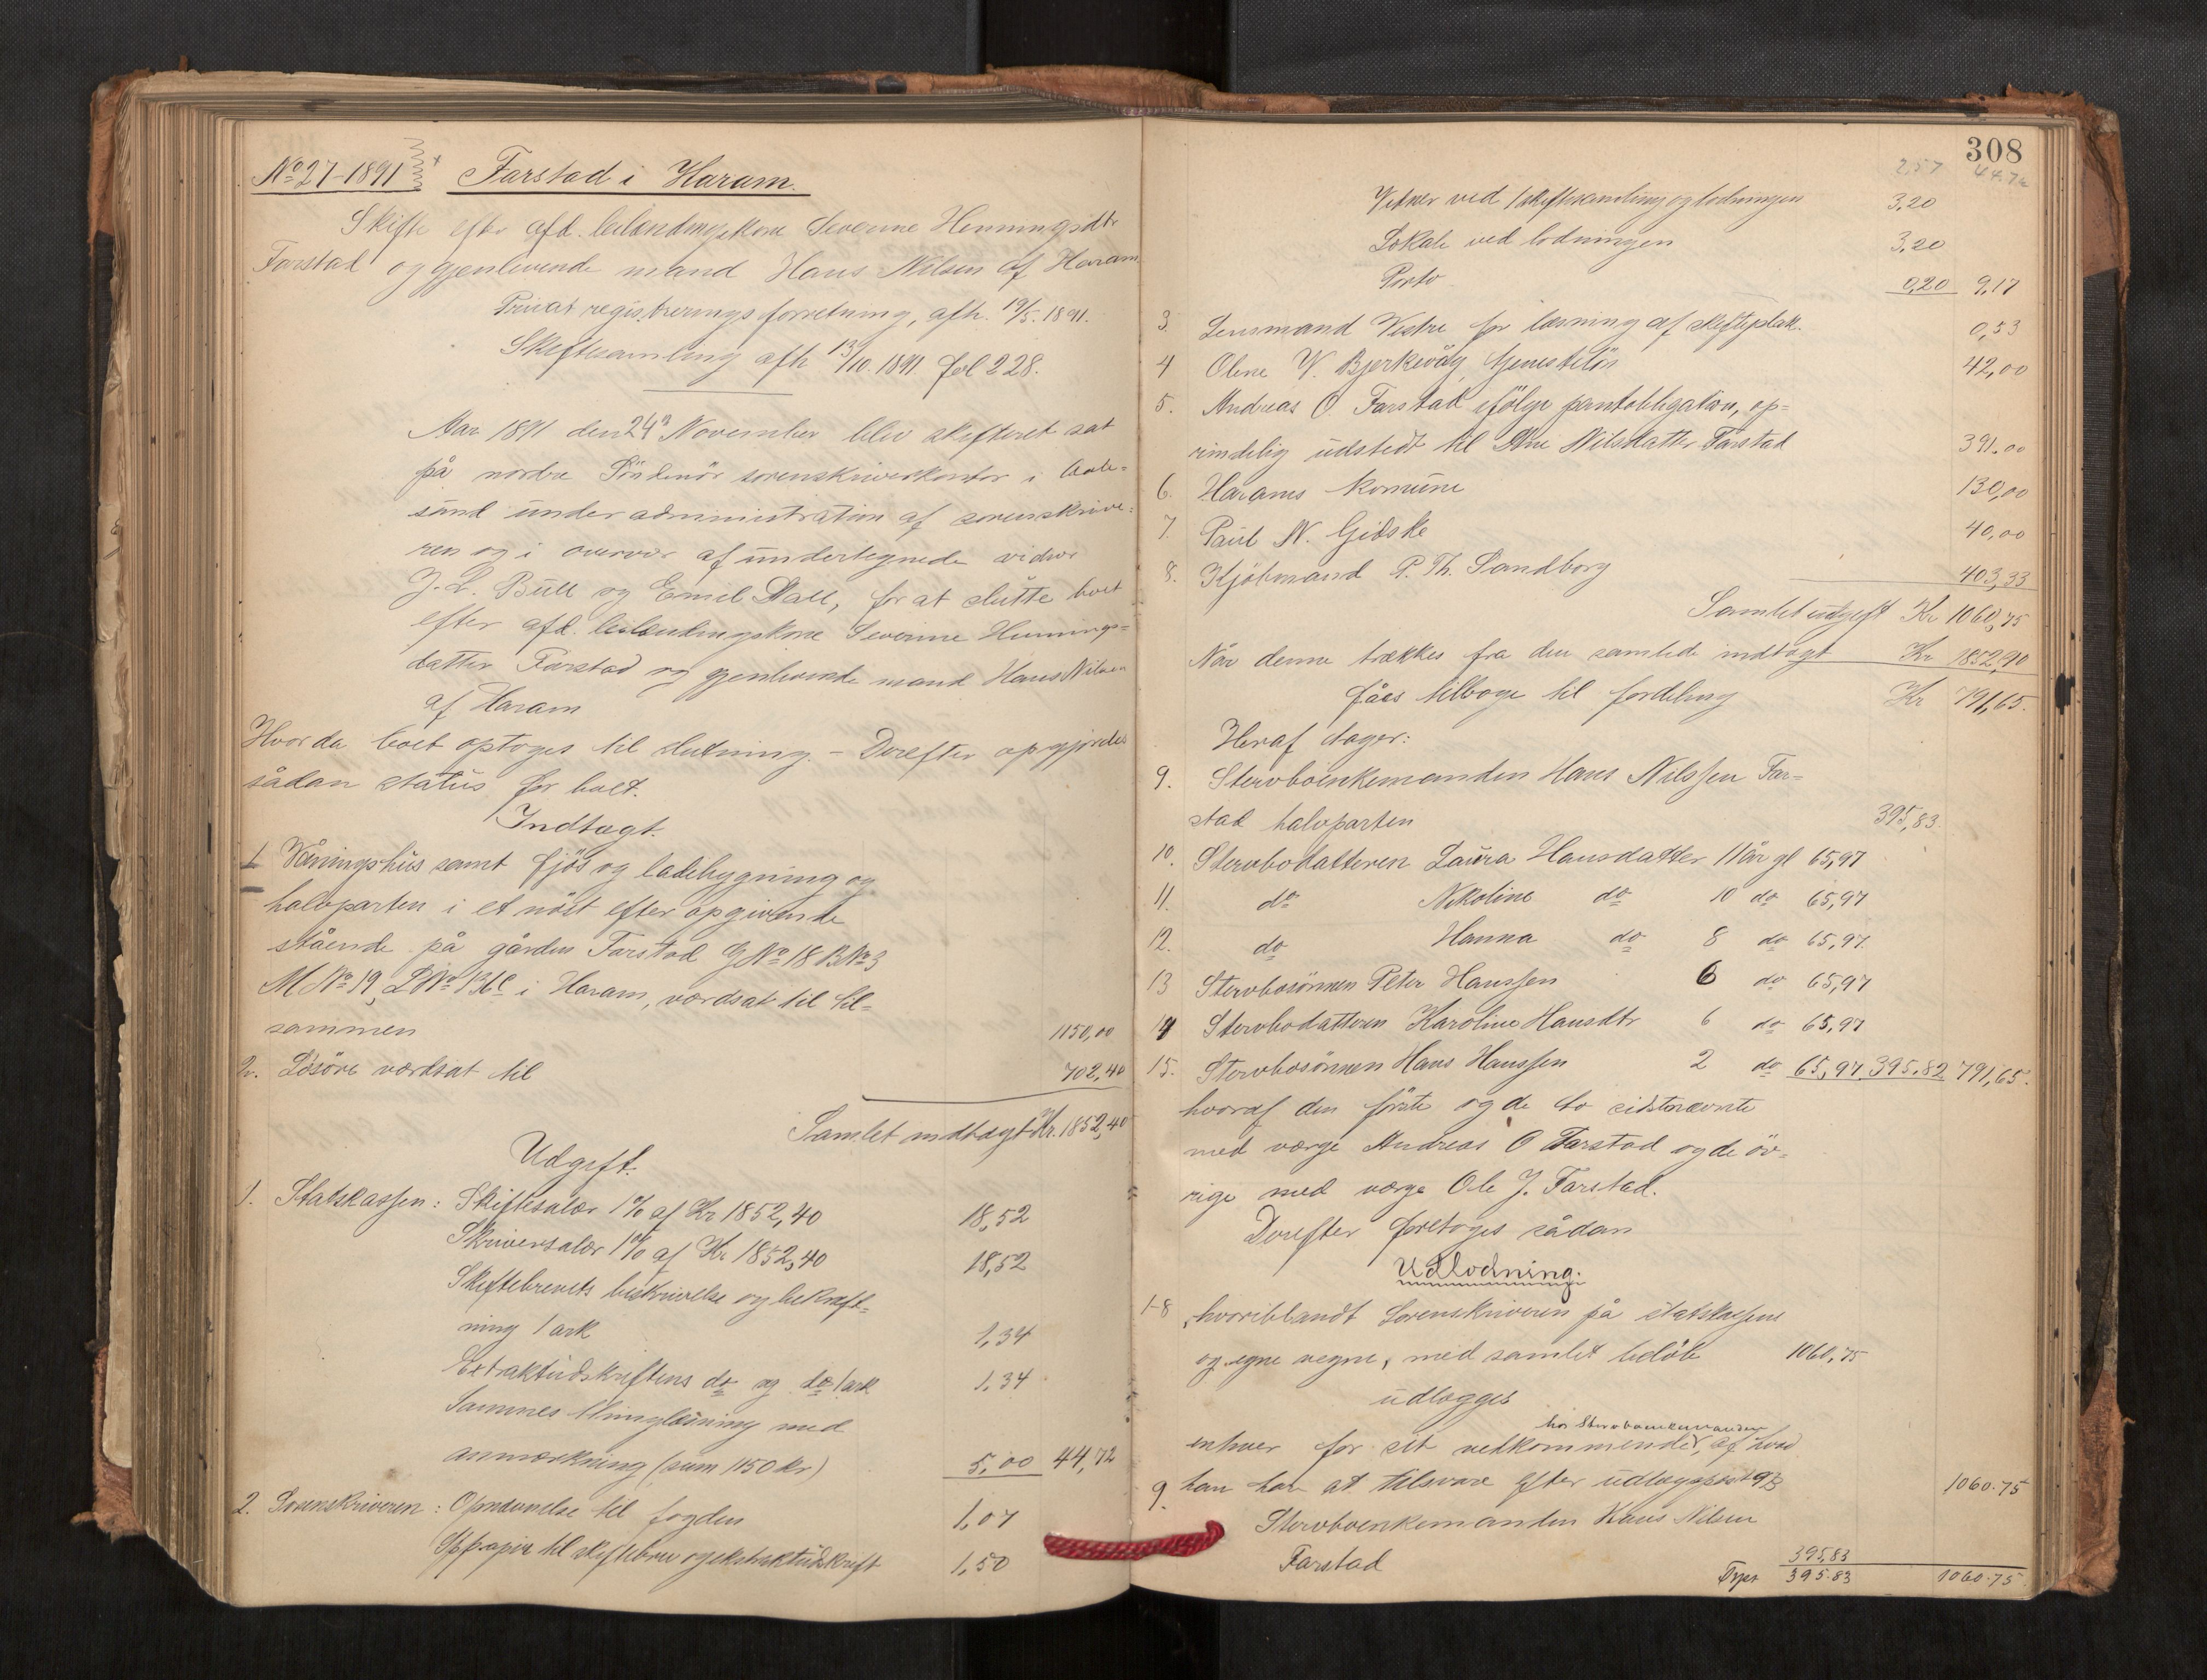 No 27-1891 Farstad i Haram.
Skifte efter afd. leilændingskone Severine Henningsdtr
Farstad og gjenlevende mand Hans Nilsen af Haram
Privat registreringsforretning, afh. 19/5. 1891.
Skiftesamling afh 13/10. 1891 fol 228.
Aar 1891 den 24de November blev skifteret sat
på nordre Söndmör sorenskriverkontor i Aale-
sund under administration af sorenskrive-
ren og i overvær af undertegnede vidner
J. L. Bull og Emil Dall, for at slutte boet
efter afd. leilændingskone Severine Hennings-
datter Farstad og gjenlevende mand Hans Nilsen
af Haram
Hvorda boet optoges til slutning. - Derefter opgjordes
sådan status for boet.
Indtægt.
1 Våningshus samt fjös og ladebygning og
halvparten i et nöst efter opgivende
stående på gården Farstad GNo 18 BNo 3
MNo 19, LNo 136c i Haram, værdsat til til-
sammen 1150,00
2. Lösöre værdsat til 702,40
Samlet indtægt Kr. 1852,40
Udgift.
1. Statskassen: Skiftesalær 1% af Kr 1852,40 18,52
Skriversalær 1% af Kr 1852,40 18,52
Skiftebrevets beskrivelse og bekræft-
ning 1 ark 1,34
Extraktudskriftens do og do 1 ark 1,34
Sammes thinglæsning med
anmærkning (sum 1150 kr) 5,00 44,72
2. Sorenskriveren: Opnævnelse til fogden 1,07
St.papir til skiftebrev og ekstraktudskrift 1,50
308
2,57 44.72
Vidner ved skiftesamling og lodningen 3,20
Lokale ved lodningen 3,20
Porto 0,20 9,17
3. Lensmand Vestre for læsning af skifteplak. 0,53
4 Oline V. Bjerkevåg, tjenestelön 42,00
5. Andreas O. Farstad ifölge pantobligation, op-
rindelig udstedt til Ane Nilsdatter Farstad 391.00
6. Harams Komune 130,00
7. Paul N. Gidske 40,00
8. Kjöbmand P. Th. Sandborg 403,33
Samlet udgift Kr 1060,75
Når denne trækkes fra den samlede indtægt Kr 1852,40
fåes tilbage til fordeling Kr 791,65.
Heraf tager:
9. Stervboenkemanden Hans Nilssen Far-
stad halvparten 395,83.
10. Stervbodatteren Laura Hansdatter 11 år gl 65,97
11. do Nikoline do 10 do 65,97
12. do Hanna do 8 do 65,97.
13 Stervbosönnen Peter Hanssen 6 do 65,97
14 Stervbodatteren Karoline Hansdtr 6 do 65,97
15. Stervbosönnen Hans Hanssen 2 do 65,97 395,82 791,65.
hvoraf den förste og de to sidstnævnte
med værge Andreas O Farstad og de öv-
rige med værge Ole J. Farstad.
Derefter foretoges sådan
Udlodning.
1-8, hvoriblandt Sorenskriveren på statskassens
og egne vegne, med samlet belöb 1060,75
udlægges
hos Stervboenkemanden
enhver for sit vedkommende, af hvad
han har at tilsvare efter udlægspost 9 1060.75
9. Stervboenkemanden Hans Nilsen
Farstad 395,83
395.83 1060.75